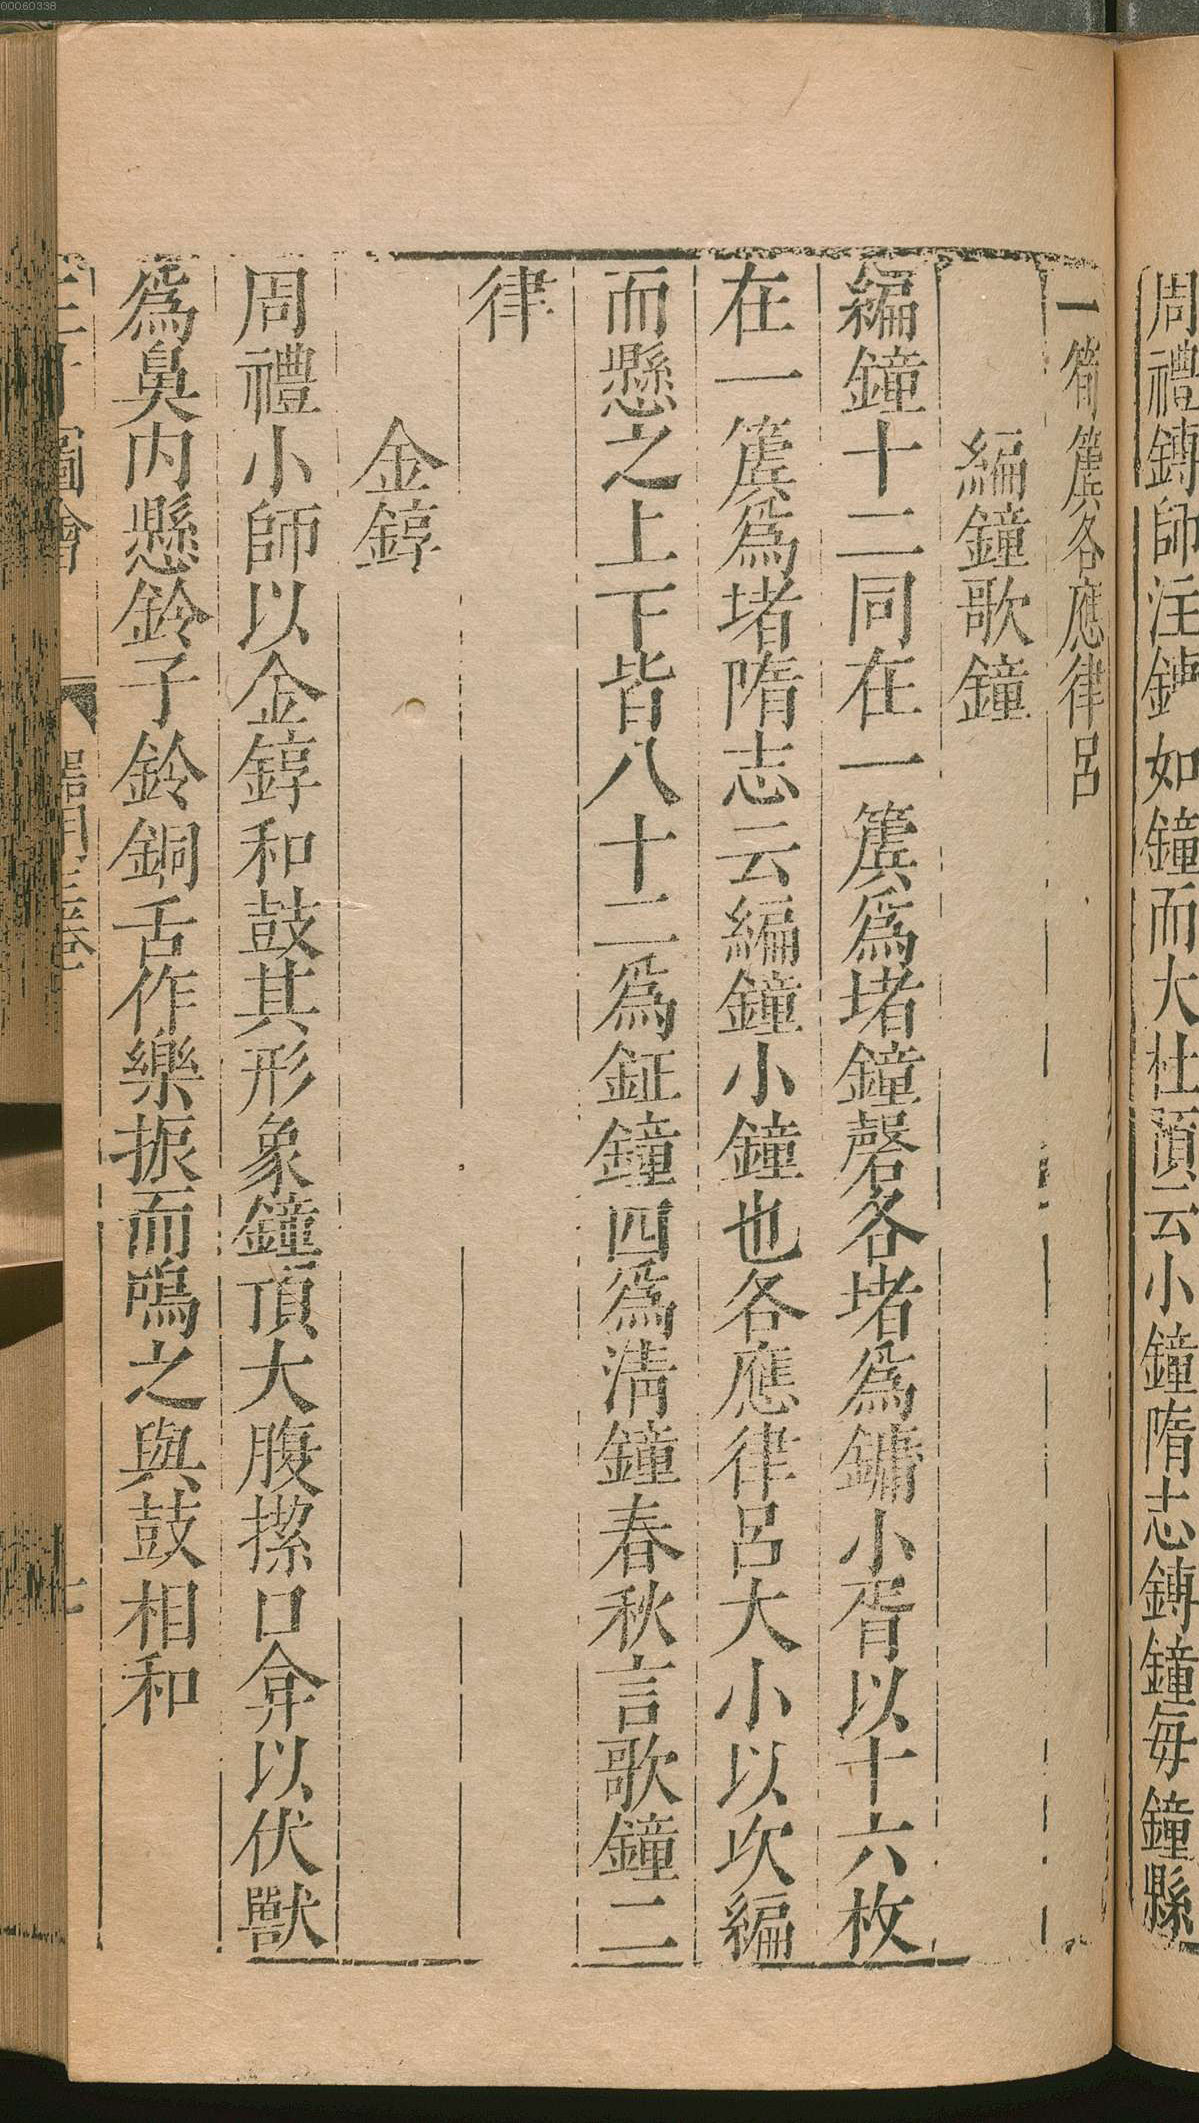 00060338
周禮鏄師注鏄如鐘而大杜預云小鐘隋志鏄鐘每鐘縣
一筍簴各應律呂
編鐘歌鐘
編鐘十二同在一簴爲堵鐘磬各堵爲鏞小胥以十六枚
在一簴爲堵隋志云編鐘小鐘也各應律呂大小以次編
而懸之上下皆八十二爲鉦鐘四爲淸鐘春秋言歌鐘二
律
金錞
周禮小師以金錞和鼓其形象鐘頂大腹㩎口弇以伏獸
爲鼻内懸鈴子鈴銅舌作樂振而鳴之與鼓相和
圖會